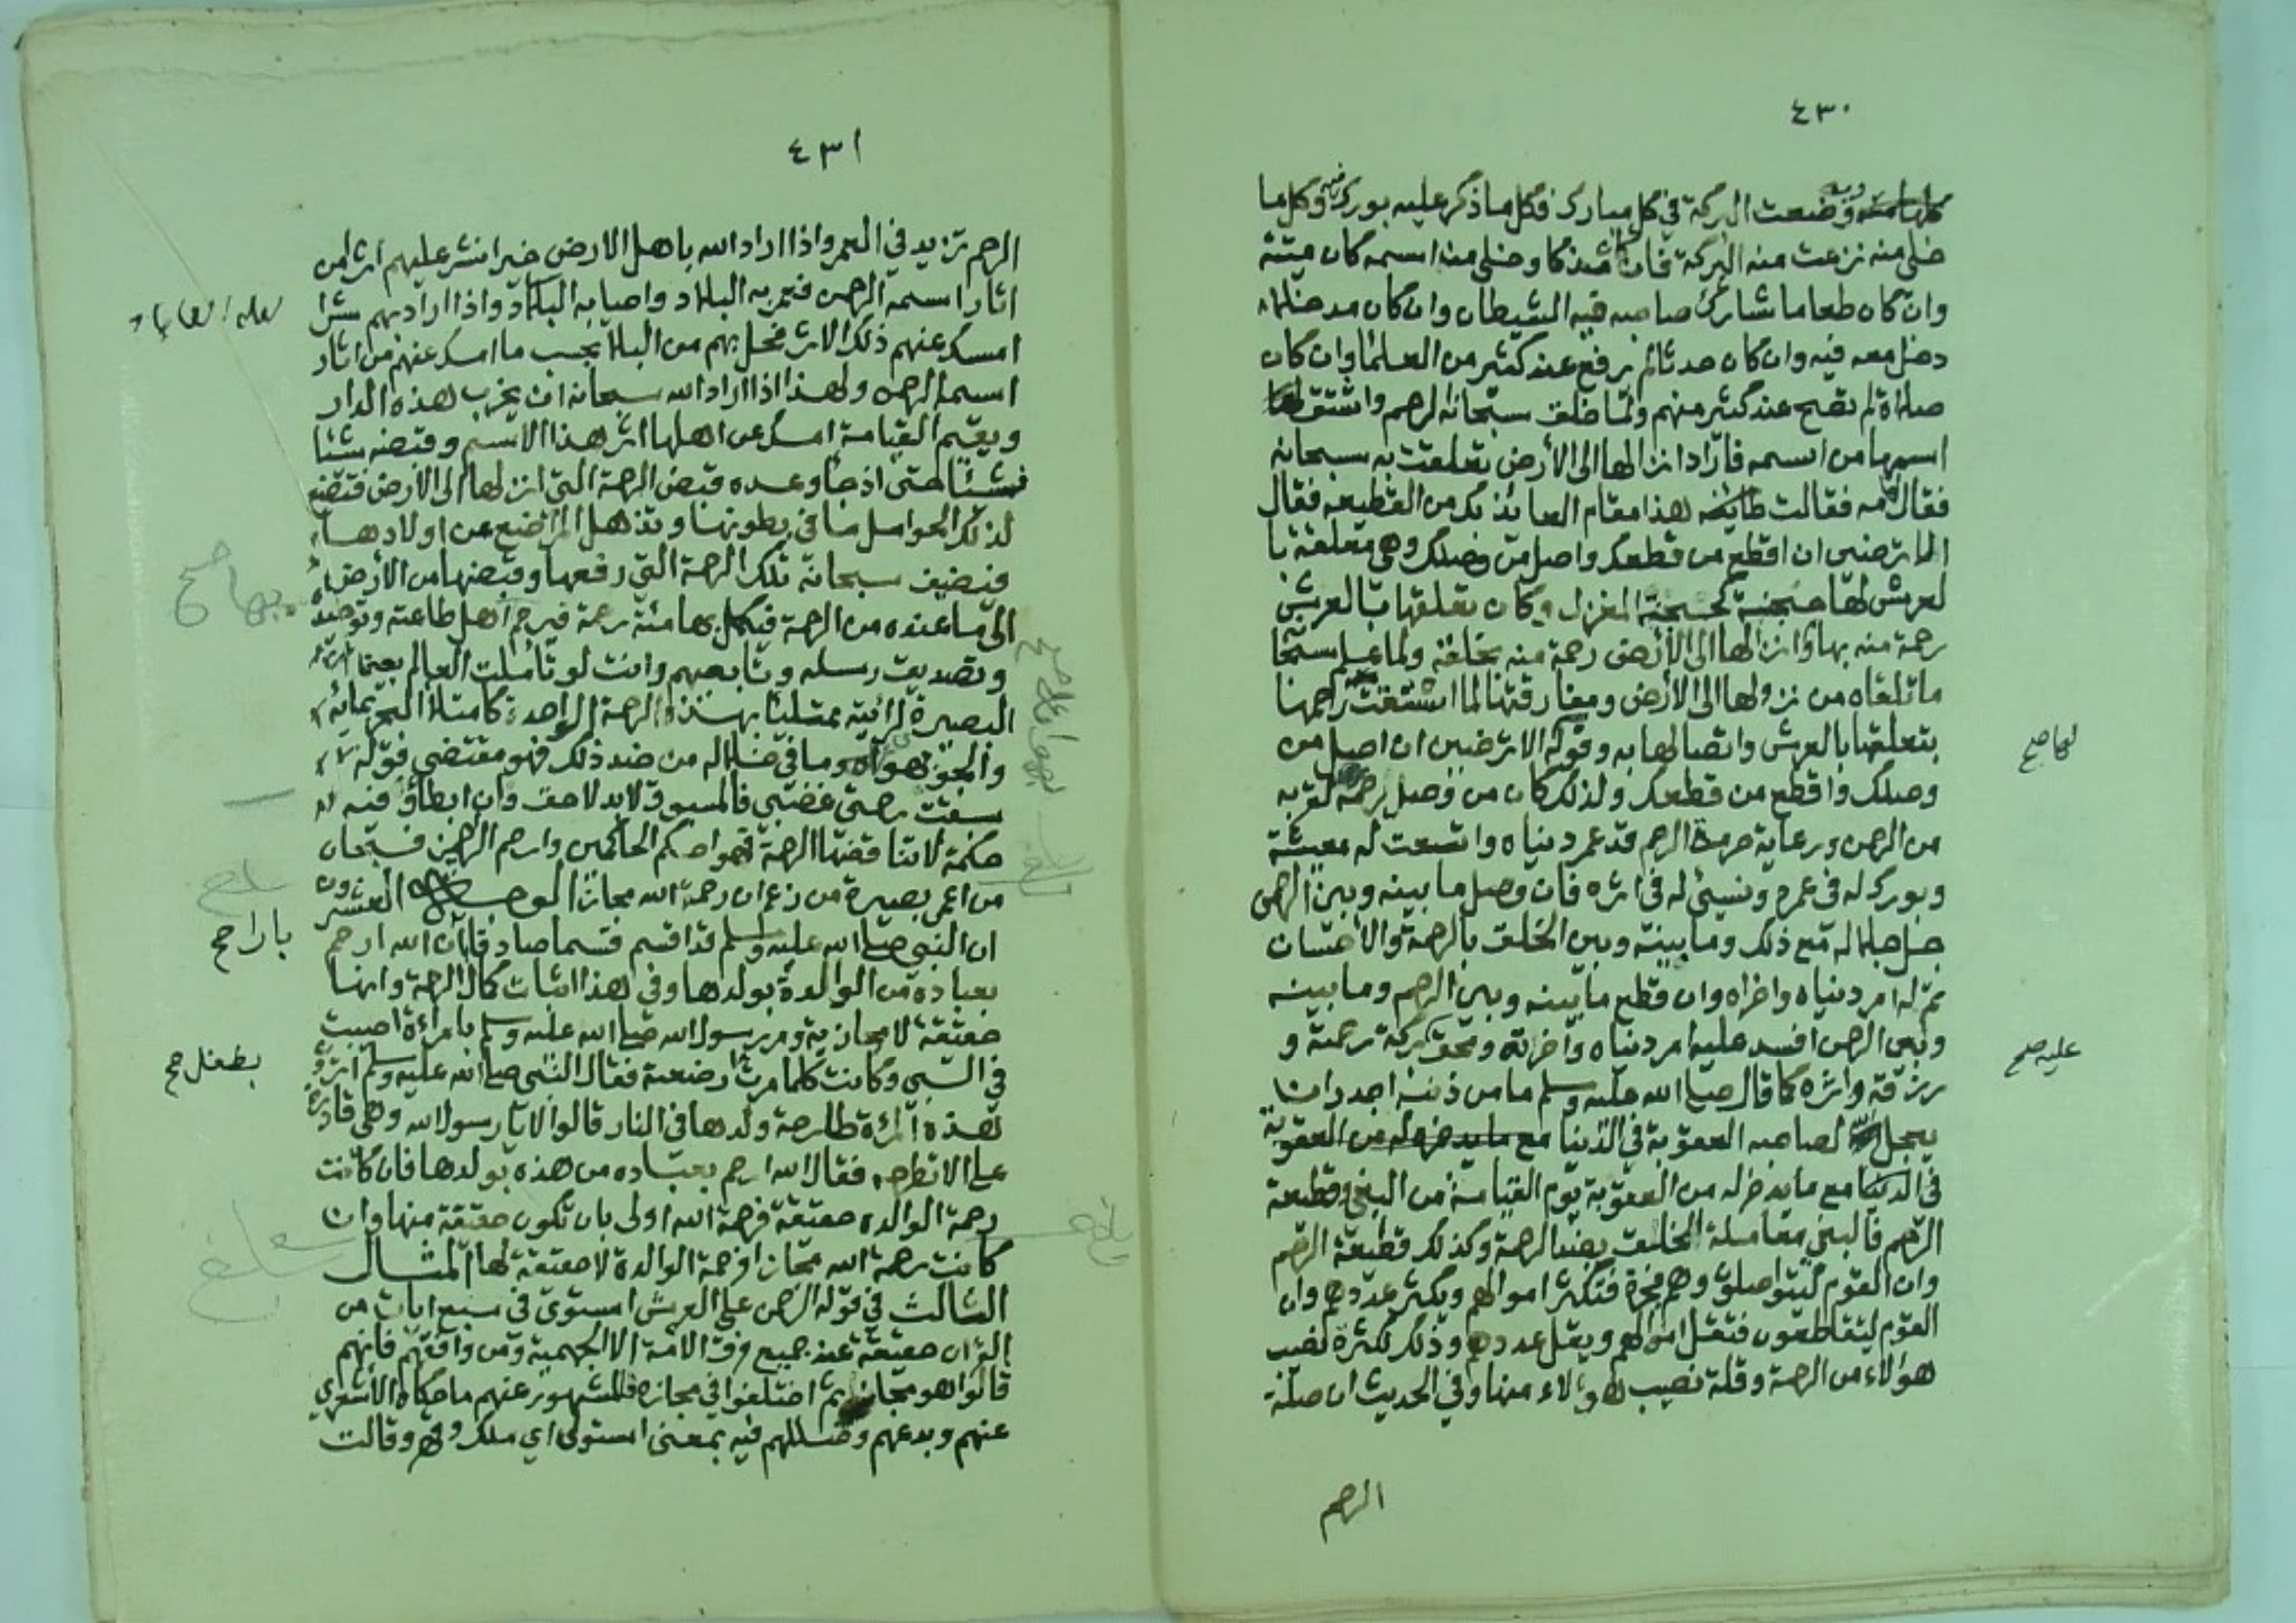 ٤٣٠
وبه وضعت البركة في كل مبارك فكل ما ذكر عليه بورك فيه وكل ما
خلي منه نزعت منه البركة فان كان مذكا وخلي منه اسمه كان ميتة
وان كان طعاما شارك صاحبه فيه الشيطان وان كان مدخلا
دخل معه فيه وان كان حدثا لم يرفع عند كثير من العلماء وان كان
صلاة لم تصح عند كثير منهم ولما خلق سبحانه الرحم واشتق لها
اسمها من اسمه فاراد انزالها الى الأرض تعلقت به سبحانه
فقال مه فقالت هذا مقام العائذ بك من القطيعه فقال
الا ترضين ان اقطع من قطعك واصل من وصلك وهي معلقة با
لعرش لها حجنة كحجنة المغزل وكان تعلقها بالعرش
رحمة منه بها وانزالها الى الأرض رحمة منه بخلقه ولما علم سبحا
ما تلقاه من نزولها الى الأرض ومفارقتها لما اشتقت رحمها
بتعلقها بالعرش واتصالها به وقوله الا ترضين ان اصل من
وصلك واقطع من قطعك ولذلك كان من وصل رحمه لقربه
من الرحمن ورعاية حرمة الرحم قد عمر دنياه واتسعت له معيشته
وبورك له في عمره ونسئ له في اثره فان وصل ما بينه وبين الرحمن
جل جلاله مع ذلك وما بينه وبين الخلق بالرحمة والأحسان
تم له امر دنياه واخراه وان قطع ما بينه وبين الرحم وما بينه
وبين الرحمن افسد عليه امر دنياه وآخرته ومحق بركة رحمته و
رزقه واثره كما قال صلى الله عليه وسلم ما من ذنب اجدر ان
يعجل لصاحبه العقوبة في الدنيا مع ما يدخر له من العقوبة
في الدنيا مع ما يدخر له من العقوبة يوم القيامة من البغي وقطيعة
الرحم فالبغي معاملة الخلق بضد الرحمة وكذلك قطيعة الرحم
وان القوم ليتواصلون وهم فجرة فتكثر اموالهم ويكثر عددهم وان
القوم ليتقاطعون فتقل اموالهم ويقل عددهم وذلك لكثرة نصيب
هؤلاء من الرحمة وقلة نصيب هؤلاء منها وفي الحديث ان صلة
الرحم
لها صح
عليه صح
٤٣١
الرحم تزيد في العمر واذا اراد الله باهل الارض خيرا نشر عليهم اثرا من
اثار اسمه الرحمن فعمر به البلاد واحيا به البلاد واذا اراد بهم شرا
امسك عنهم ذلك الاثر فحل بهم من البلاء بحسب ما امسك عنهم من اثار
اسمه الرحمن ولهذا اذا اراد الله سبحانه ان يخرب هذه الدار
ويقيم القيامة امسك عن اهلها اثر هذا الاسم وقبضه شئا
فشئا حتى اذ جا وعده قبض الرحمة التي انزلها الى الارض فتضع
لذلك الحوامل ما في بطونها وتذهل المراضع عن اولادها
فيضيف سبحانه تلك الرحمة التي رفعها وقبضها من الأرض
الى ما عنده من الرحمة فيكمل بها مئة رحمة فيرحم اهل طاعته وتوحيده
وتصديق رسله وتابعهم وانت لو تأملت العالم بعين
البصيرة لرأيته ممتليا بهذه الرحمة الواحدة كامتلاء البحر بمائه
والجو بهوائه وما في خلاله من ضد ذلك فهو مقتضى قوله
سبقت رحمتي غضبي فالمسبوق لابد لاحق وان ابطأ وفيه
حكمة لا تناقضها الرحمة فهو احكم الحاكمين وارحم الراحمين فسبحان
من اعمى بصيرة من زعم ان رحمة الله مجاز الوجه العشرون
ان النبي صلى الله عليه وسلم قد اقسم قسما صادقا ان الله ارحم
بعباده من الوالدة بولدها وفي هذا اثبات كمال الرحمة وانها
حقيقة لا مجازية ومر رسول الله صلى الله عليه وسلم بامراءة اصيبت
في السبي وكانت كلما مرت ارضعته فقال النبي صلى الله عليه وسلم اترون
هذه المرءة طارحة ولدها في النار قالوا لا يا رسول الله وهي قادرة
على الا تطرحه فقال الله ارحم بعباده من هذه بولدها فان كانت
رحمة الوالدة حقيقة فرحمة الله اولى بان تكون حقيقة منها وان
كانت رحمة الله مجازا فرحمة الوالدة لا حقيقة لها المثال
الثالث في قوله الرحمن على العرش استوى في سبع ايات من
القرآن حقيقة عند جميع فرق الامة الا الجهمية ومن وافقهم فانهم
قالوا هو مجاز ثم اختلفوا في مجازه فالمشهور عنهم ما حكاه الأشعري
عنهم وبدعهم وضللهم فيه بمعنى استولى اي ملك وقهر وقالت
لعله العباد
بها صح
بلغ
بارا صح
بطفل صح